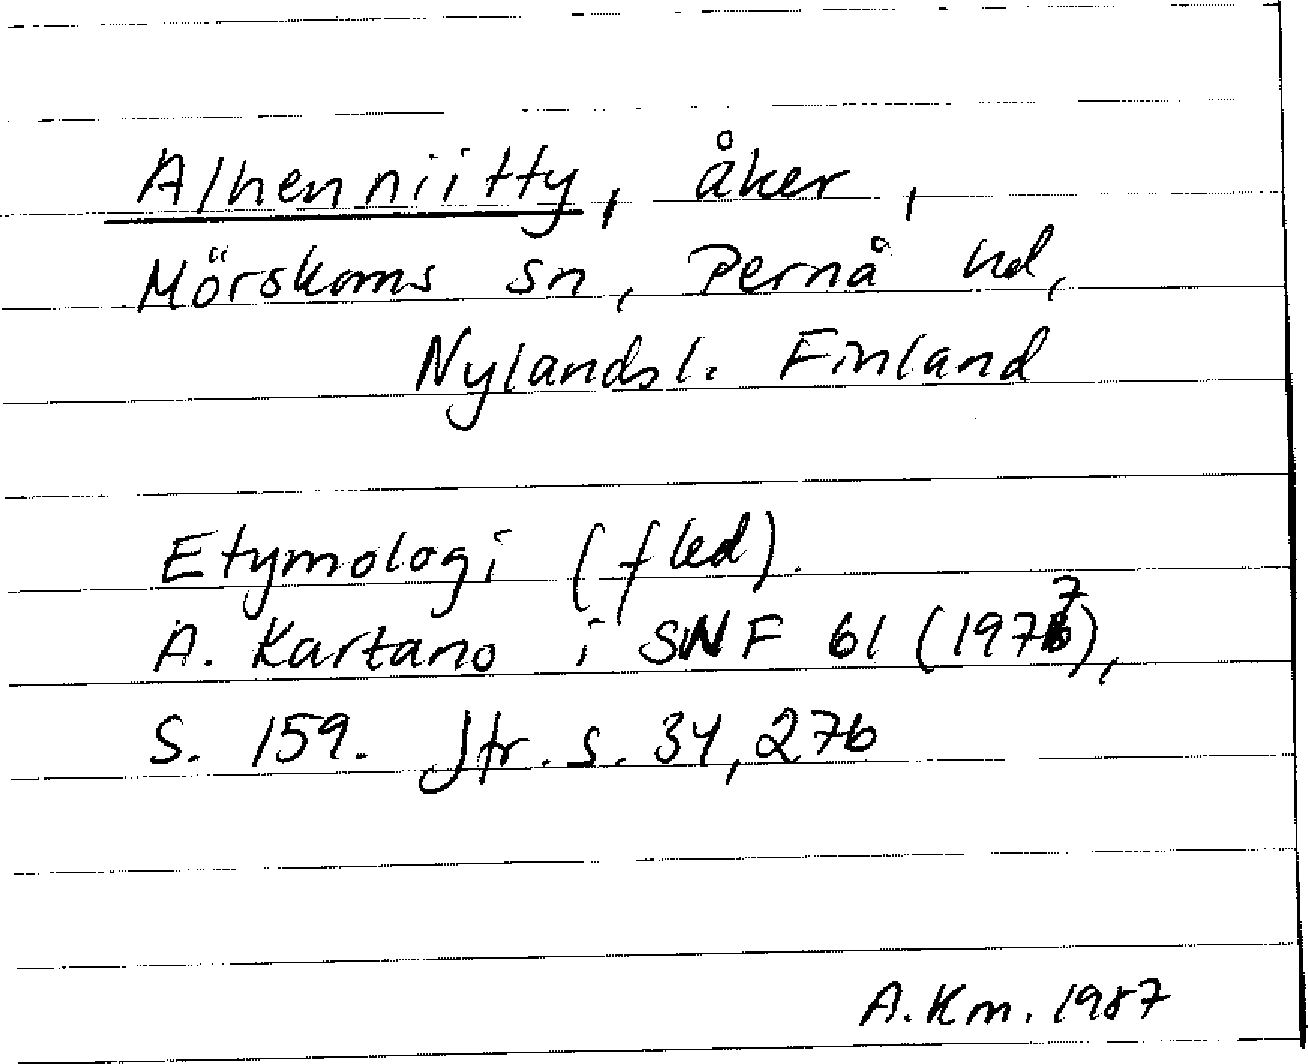 Alhenniitty, åker,
Mörskoms sn, Pernå hd,
Nylandsl. Finland
Etymologi (fled).
A. Kartano i SNF 61 (1977),
S. 159. Jfr. s. 34, 276
A. Km. 1987